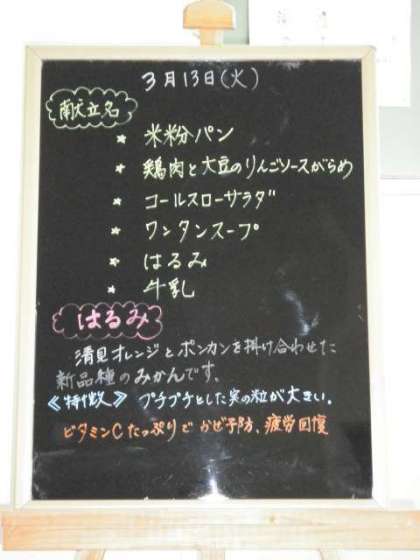 3月13日(火)
献立名
★ 米粉パン
★ 鶏肉と大豆のりんごソースがらめ
★ コールスローサラダ
★ ワンタンスープ
★ はるみ
★ 牛乳
はるみ
清見オレンジとポンカンを掛け合わせた
新品種のみかんです。
《特徴》プチプチとした実の粒が大きい。
ビタミンCたっぷりでかぜ予防、疲労回復